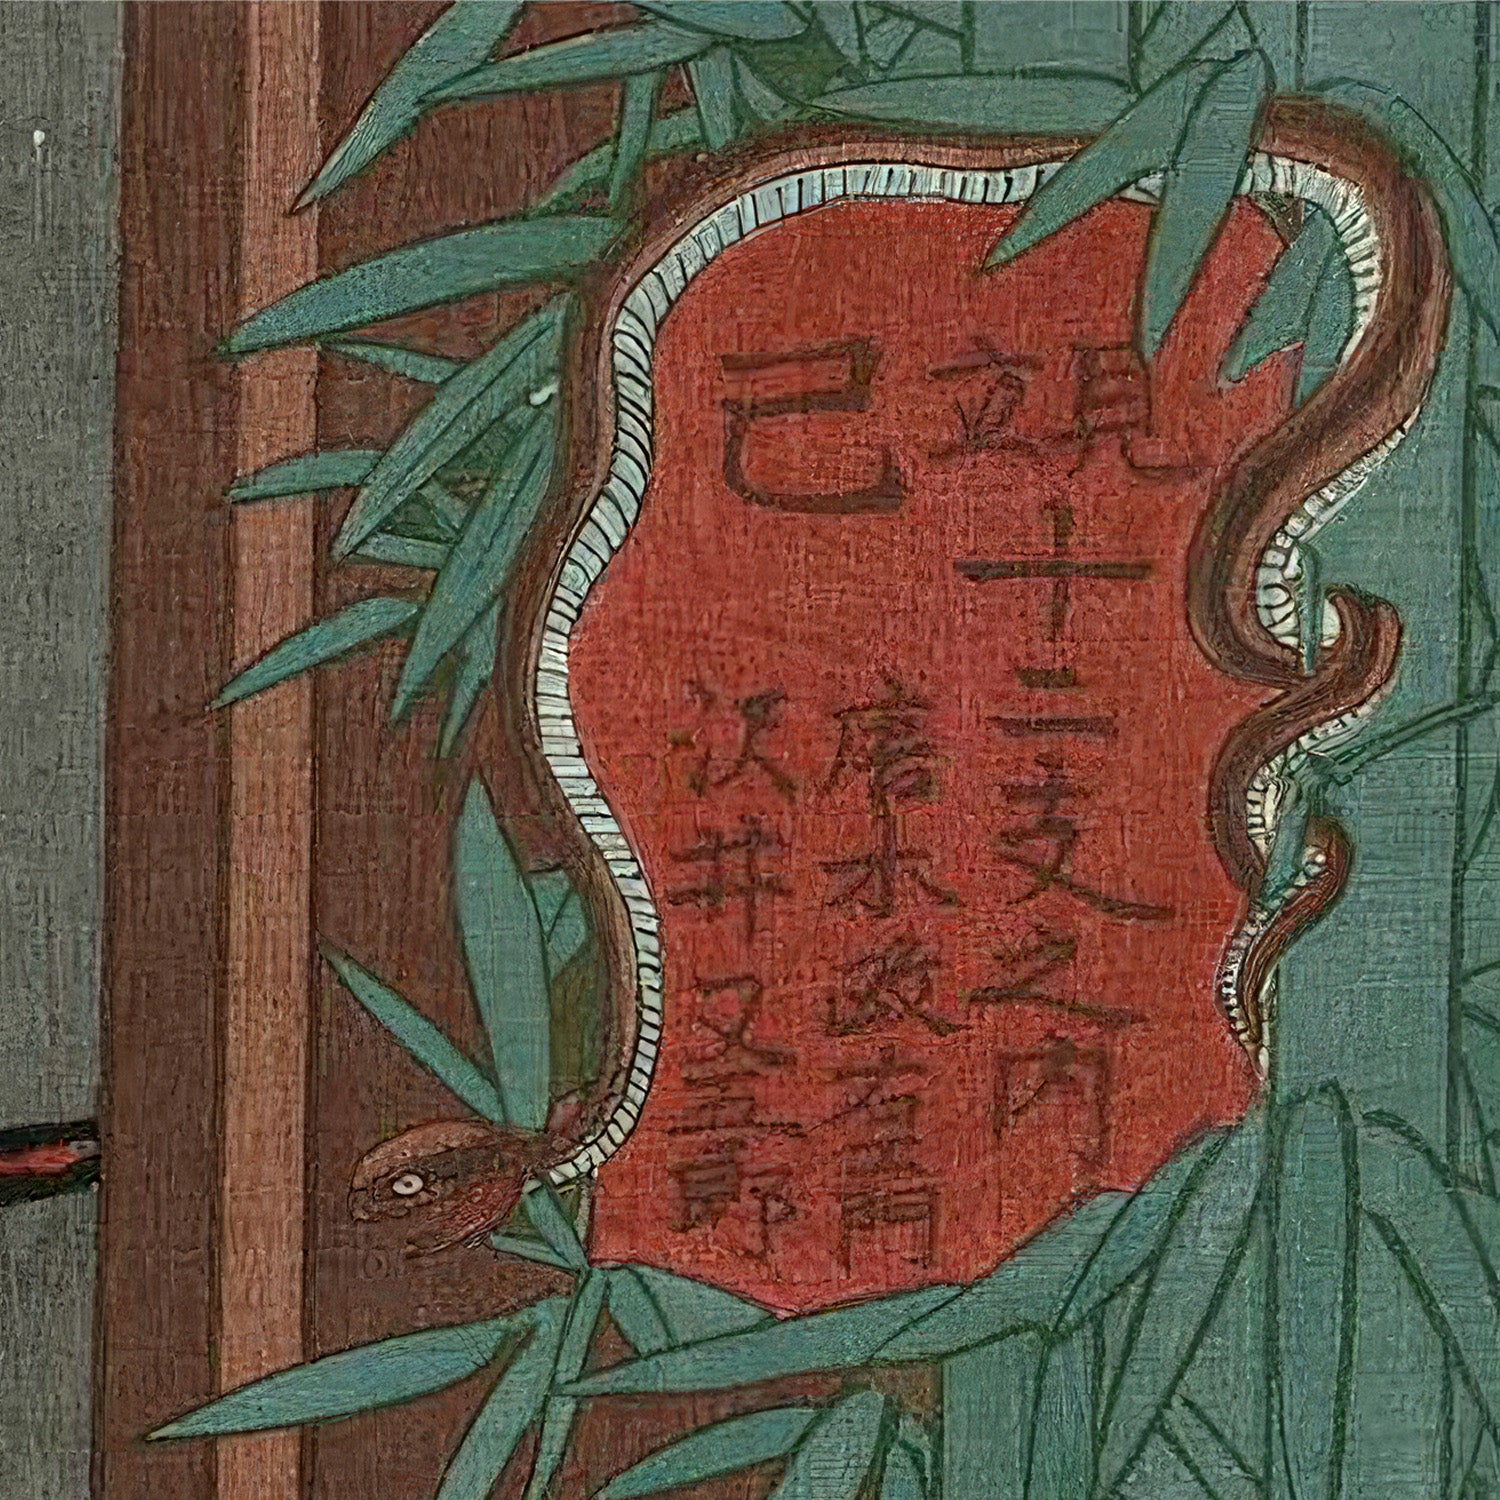 見立
十二支之内
巳
唐木政右エ門
沢井又五郎